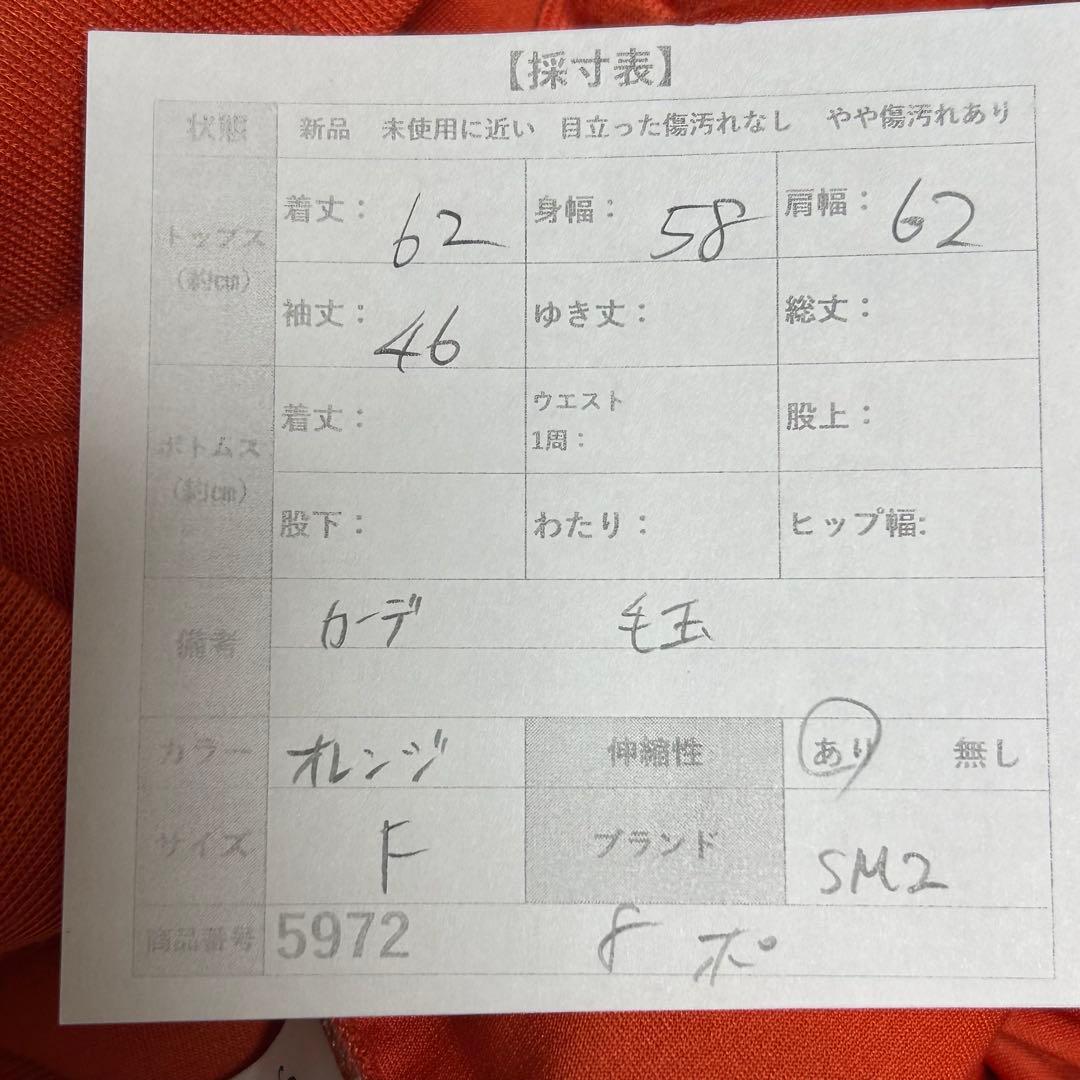 【採寸表】
状態 新品 未使用に近い 目立った傷汚れなし やや傷汚れあり
トップス (約cm)
着丈: 62 身幅: 58 肩幅: 62
袖丈: 46 ゆき丈: 総丈:
ボトムス (約cm)
着丈: ウエスト 1周: 股上:
股下: わたり: ヒップ幅:
備考 カーデ 毛玉
カラー オレンジ 伸縮性 あり 無し
サイズ F ブランド SM2
商品番号 5972 8 ポ